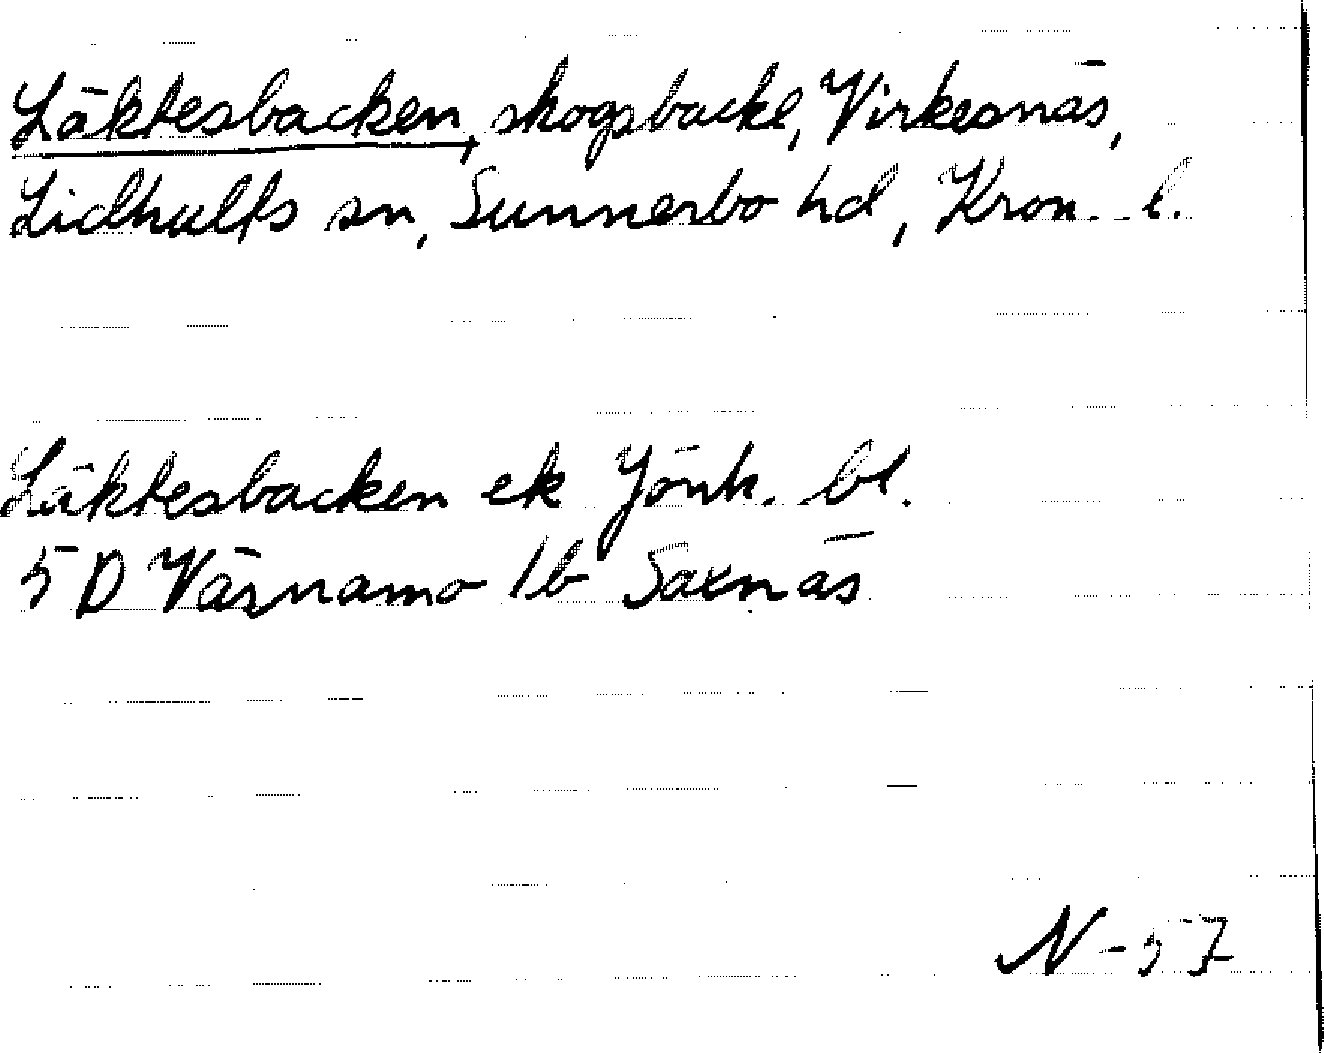 Läktesbacken, skogsbacke, Virkesnäs,
Lidhults sn, Sunnerbo hd, Kron. l.
Läktesbacken ek Jönk. bl.
5 D Värnamo 1b Saxnäs
N-57